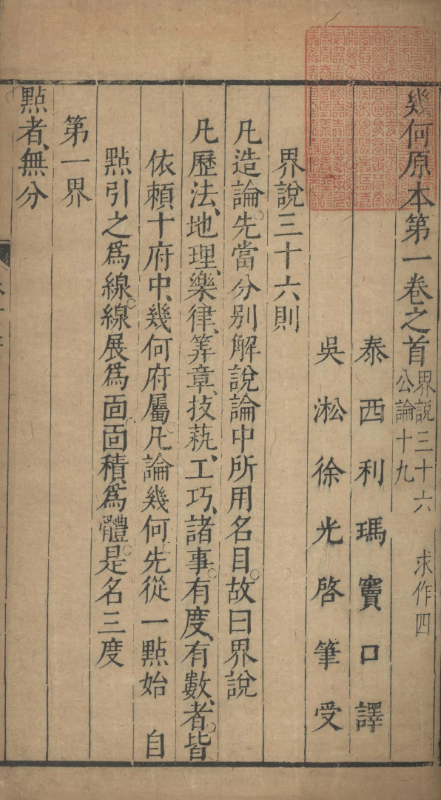 幾何原本第一卷之首 界說三十六 公論十九 求作四
泰西利瑪竇口譯
吳淞徐光啓筆受
界說三十六則
凡造論、先當分別解說論中所用名目。故曰界說
凡歷法、地理、樂律、筭章、技藝、工巧、諸事。有度、有數、者、皆
依賴十府中、幾何府屬。凡論幾何、先從一點始 自
點引之爲線、線展爲面、面積爲體、是名三度
第一界
點者、無分